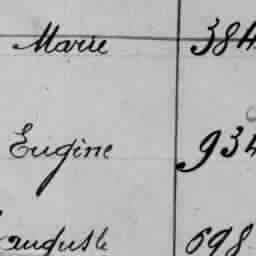 Marie 384
Eugène 934
auguste 698